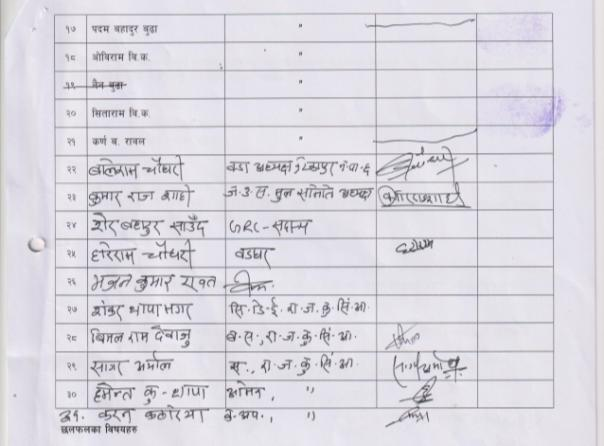 १७ पदम बहादुर बुढा "
१८ ओबिराम बि.क. "
१९ जैन बुढा "
२० सिताराम बि.क. "
२१ कर्ण ब. रावल "
२२ बालिराम चौधरी वडा अध्यक्ष
२३ कुमार राज शाही ज.उ.स. मुल समिति अध्यक्ष
२४ शेर बहादुर साउँद GRC-सदस्य
२५ हरिराम चौधरी बडघर
२६ भजन कुमार रावत
२७ शंकर थापा मगर सि.डि.ई. रा.ज.कु.सिं.आ.
२८ बिमल राम दैवाजु ब.स., रा.ज.कु.सिं.आ.
२९ स., रा.ज.कु.सिं.आ.
३० हेमन्त कु-थापा अमिन, "
३१. करन कठोरिया "
छलफलका विषयहरु